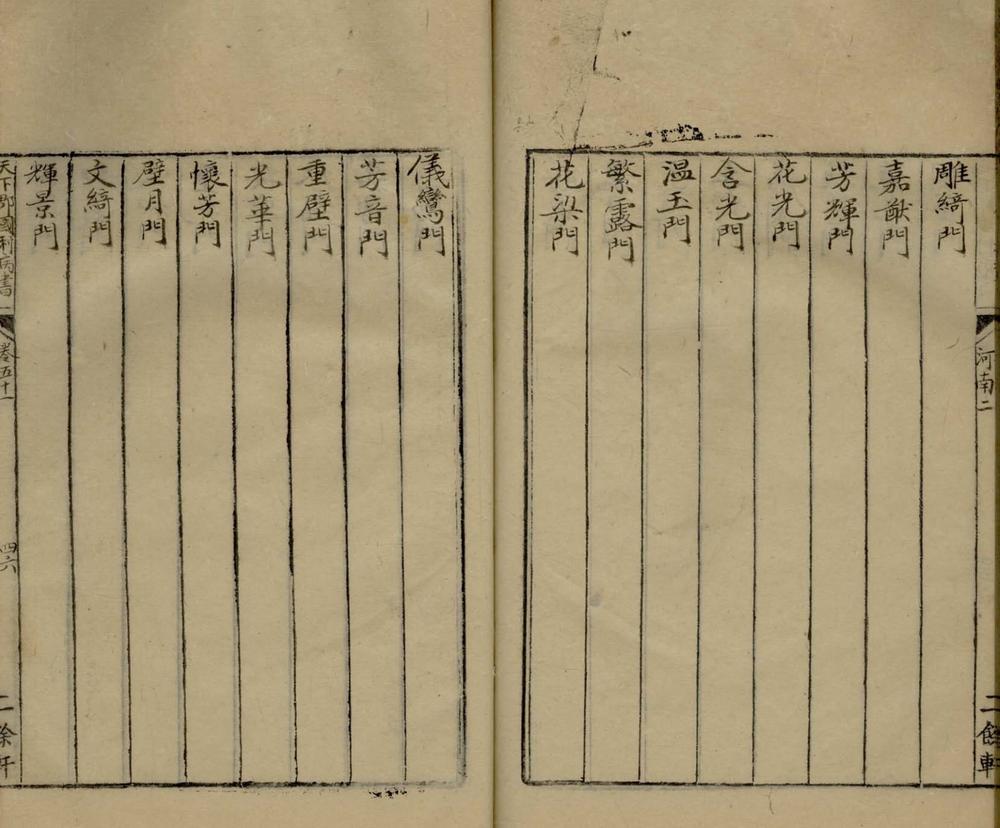 河南二
二餘軒
雕綺門
嘉猷門
芳輝門
花光門
含光門
溫玉門
繁露門
花梁門
儀鸞門
芳音門
重壁門
光華門
懷芳門
壁月門
文綺門
輝景門
天下郡國利病書
卷五十一
四六
二餘軒